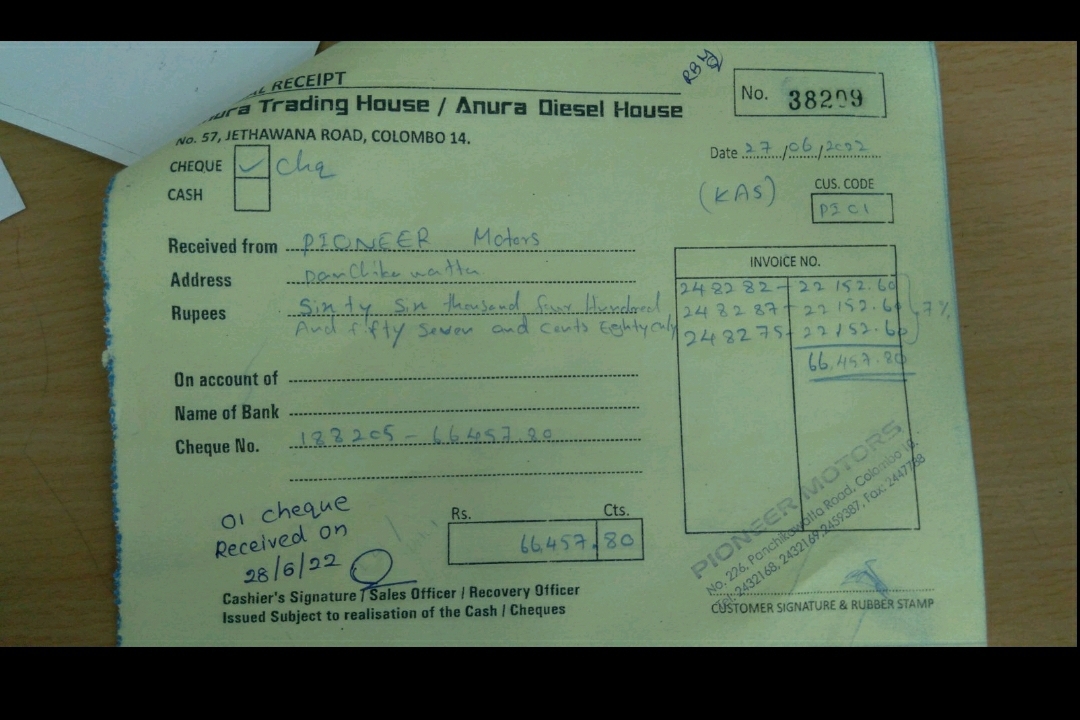 RECEIPT
Trading House / Anura Diesel House
No. 57, JETHAWANA ROAD, COLOMBO 14.
No. 38209
Date 27/06/2022
CHEQUE ✓ Chq
CASH
(KAS)
CUS. CODE
PIC1
Received from PIONEER Motors
Address Panchikawatta
Rupees Sixty Six thousand four Hundred
And fifty seven and cents Eighty only
INVOICE NO.
248282 - 22 152.60
248287 - 22 152.60
248275 - 22152.60
7%
66,457.80
On account of
Name of Bank
Cheque No. 188205 - 66457.80
01 cheque
Received on
28/6/22
Rs. Cts.
66,457.80
Cashier's Signature / Sales Officer / Recovery Officer
Issued Subject to realisation of the Cash / Cheques
PIONEER MOTORS
No. 226, Panchikawatta Road, Colombo 10.
Tel: 2432168, 2432169, 2459387, Fax: 2447738
CUSTOMER SIGNATURE & RUBBER STAMP